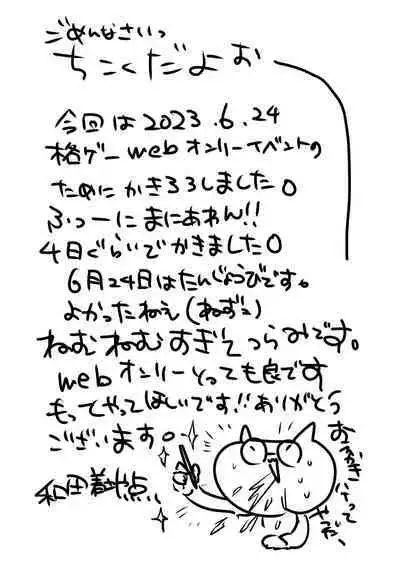 ごめんなさいっ
ちこくだよぉ
今回は2023.6.24
格ゲーwebオンリーイベントの
ためにかきろろしました。
ふつーにまにあわん!!
4日ぐらいでかきました。
6月24日はたんじょうびです。
よかったねぇ(ねずこ)
ねむねむすぎてつらみです。
webオンリーとっても良です
もってやってほしいです!!ありがとう
ございます。
和田